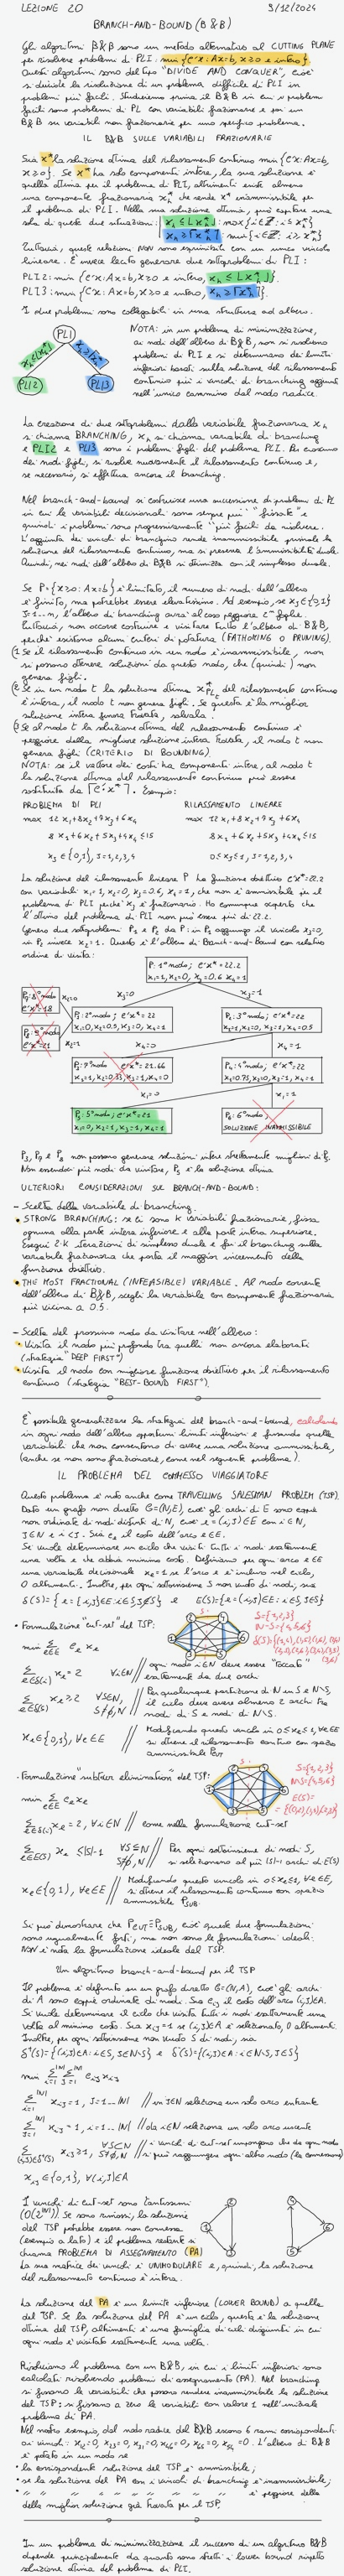 LEZIONE 20 9/12/2024
BRANCH-AND-BOUND (B & B)
Gli algoritmi B&B sono un metodo alternativo al CUTTING PLANE
per risolvere problemi di PLI: min {c'x: Ax=b, x≥0 e intero}.
Questi algoritmi sono del tipo "DIVIDE AND CONQUER", cioè
si divide la risoluzione di un problema difficile di PLI in
problemi più facili. Studieremo prima il B&B in cui i problemi
facili sono problemi di PL con variabili frazionarie e poi un
B&B su variabili non frazionarie per uno specifico problema.
IL B&B SULLE VARIABILI FRAZIONARIE
Sia x* la soluzione ottima del rilassamento continuo min {c'x: Ax=b,
x≥0}. Se x* ha solo componenti intere, la sua soluzione è
quella ottima per il problema di PLI, altrimenti esiste almeno
una componente frazionaria x*h che rende x* inammissibile per
il problema di PLI. Nella sua soluzione ottima, può capitare una
sola di queste due situazioni: xh ≤ ⌊x*h⌋: max{i∈Z: i≤x*h}
xh ≥ ⌈x*h⌉: min{i∈Z: i≥x*h}
Tuttavia, queste relazioni NON sono esprimibili con un unico vincolo
lineare. È invece lecito generare due sottoproblemi di PLI:
PLI2: min {c'x: Ax=b, x≥0 e intero, xh ≤ ⌊x*h⌋}.
PLI3: min {c'x: Ax=b, x≥0 e intero, xh ≥ ⌈x*h⌉}.
I due problemi sono collegabili in una struttura ad albero.
PLI
xh≤⌊x*h⌋ xh≥⌈x*h⌉
PLI2 PLI3
NOTA: in un problema di minimizzazione,
ai nodi dell'albero di B&B, non si risolvono
problemi di PLI e si determinano dei limiti
inferiori basati sulla soluzione del rilassamento
continuo più i vincoli di branching aggiunti
nell'unico cammino dal nodo radice.
La creazione di due sottoproblemi dalla variabile frazionaria xh
si chiama BRANCHING, xh si chiama variabile di branching
e PLI2 e PLI3 sono i problemi figli del problema PLI. Per ciascuno
dei nodi figli, si risolve nuovamente il rilassamento continuo e,
se necessario, si effettua ancora il branching.
Nel branch-and-bound si costruisce una successione di problemi di PL
in cui le variabili decisionali sono sempre più "fissate" e
quindi i problemi sono progressivamente "più facili da risolvere".
L'aggiunta dei vincoli di branching rende inammissibile primale la
soluzione del rilassamento continuo, ma si preserva l'ammissibilità duale.
Quindi, nei nodi dell'albero di B&B si utilizza con il simplesso duale.
Se P={x≥0: Ax=b} è limitato, il numero di nodi dell'albero
è finito, ma potrebbe essere elevatissimo. Ad esempio, se xj∈{0,1}
j=1..n, l'albero di branching avrà al suo peggiore 2ⁿ foglie.
Tuttavia, non occorre costruire e visitare tutto l'albero di B&B,
perché esistono alcuni criteri di potatura (FATHOMING O PRUNING).
1) Se il rilassamento continuo in un nodo è inammissibile, non
si possono ottenere soluzioni da questo nodo, che (quindi) non
genera figli.
2) Se in un nodo t la soluzione ottima x*PLt del rilassamento continuo
è intera, il nodo t non genera figli. Se questa è la miglior
soluzione intera finora trovata, salvala.
3) Se al nodo t la soluzione ottima del rilassamento continuo è
peggiore della migliore soluzione intera trovata, il nodo t non
genera figli (CRITERIO DI BOUNDING).
NOTA: se il vettore dei costi ha componenti intere, al nodo t
la soluzione ottima del rilassamento continuo può essere
sostituita da ⌈c'x*⌉. Esempio:
PROBLEMA DI PLI RILASSAMENTO LINEARE
max 12x1+8x2+9x3+6x4 max 12x1+8x2+9x3+6x4
8x1+6x2+5x3+4x4≤15 8x1+6x2+5x3+4x4≤15
xj∈{0,1}, j=1,2,3,4 0≤xj≤1, j=1,2,3,4
La soluzione del rilassamento lineare P ha funzione obiettivo c'x*=22.2
con variabili x1=1, x2=0, x3=0.6, x4=1, che non è ammissibile per il
problema di PLI perché x3 è frazionario. Ho comunque scoperto che
l'ottimo del problema di PLI non può essere più di 22.2.
Genero due sottoproblemi P2 e P3 da P: in P2 aggiungo il vincolo x3=0,
in P3 invece x3=1. Questo è l'albero di Branch-and-Bound con relativo
ordine di visita:
P: 1° nodo; c'x*=22.2
x1=1, x2=0, x3=0.6 x4=1
x3=0 x3=1
x2=0
x2=1
P2: 2° nodo; c'x*=22
P3: 3° nodo; c'x*=22
x4=0 x4=1
x1=1, x2=0.33, x3=1, x4=0
P4: 4° nodo; c'x*=22
x1=0.75, x2=0, x3=1, x4=1
x1=0 x1=1
P5: 5° nodo; c'x*=21
x1=0, x2=1, x3=1, x4=1
P6: 6° nodo;
SOLUZIONE INAMMISSIBILE
Non essendoci più nodi da visitare, P5 è la soluzione ottima
ULTERIORI CONSIDERAZIONI SUL BRANCH-AND-BOUND:
- Scelta della variabile di branching.
• STRONG BRANCHING: se ci sono K variabili frazionarie, fissa
ognuna alla parte intera inferiore e alla parte intera superiore.
Esegui 2·K iterazioni di simplesso duale e fai il branching sulla
variabile frazionaria che porta il maggior incremento della
funzione obiettivo.
• THE MOST FRACTIONAL (INFEASIBLE) VARIABLE. Al nodo corrente
dell'albero di B&B, scegli la variabile con componente frazionaria
più vicina a 0.5.
- Scelta del prossimo nodo da visitare nell'albero:
• Visita il nodo più profondo tra quelli non ancora elaborati
(strategia "DEEP FIRST")
• Visita il nodo con migliore funzione obiettivo per il rilassamento
continuo (strategia "BEST-BOUND FIRST").
È possibile generalizzare la strategia del branch-and-bound, calcolando
in ogni nodo dell'albero opportuni limiti inferiori e fissando quelle
variabili che non consentono di avere una soluzione ammissibile,
(anche se non sono frazionarie, come nel seguente problema).
IL PROBLEMA DEL COMMESSO VIAGGIATORE
Questo problema è noto anche come TRAVELLING SALESMAN PROBLEM (TSP).
Dato un grafo non diretto G=(N,E), cioè gli archi di E sono coppie
non ordinate di nodi distinti di N, cioè e=(i,j)∈E con i∈N,
j∈N e i<j. Sia ce il costo dell'arco e∈E.
Si vuole determinare un ciclo che visiti tutti i nodi esattamente
una volta e che abbia minimo costo. Definiamo per ogni arco e∈E
una variabile decisionale xe=1 se l'arco e è incluso nel ciclo,
0 altrimenti. Inoltre, per ogni sottoinsieme S non vuoto di nodi, sia
δ(S)={e=(i,j)∈E: i∈S, j∉S} e E(S)={e=(i,j)∈E: i∈S, j∈S}
• Formulazione "cut-set" del TSP:
min Σe∈E ce xe
Σe∈δ(i) xe = 2 ∀i∈N // ogni nodo i∈N deve essere "toccato"
esattamente da due archi
Σe∈δ(S) xe ≥ 2 ∀S⊂N, S≠∅,N // Per qualunque partizione di N in S e N\S,
il ciclo deve avere almeno 2 archi tra
nodi di S e nodi di N\S.
xe∈{0,1}, ∀e∈E // Modificando questo vincolo in 0≤xe≤1, ∀e∈E
si ottiene il rilassamento continuo con spazio
ammissibile PCUT
S={1,2,3}
N\S={4,5,6}
• Formulazione "subtour elimination" del TSP:
min Σe∈E ce xe
Σe∈δ(i) xe = 2, ∀i∈N // come nella formulazione cut-set
Σe∈E(S) xe ≤ |S|-1 ∀S⊆N S≠∅,N // Per ogni sottoinsieme di nodi S,
si selezionano al più |S|-1 archi di E(S)
xe∈{0,1}, ∀e∈E // Modificando questo vincolo in 0≤xe≤1, ∀e∈E,
si ottiene il rilassamento continuo con spazio
ammissibile PSUB.
S={1,2,3}
N\S={4,5,6}
E(S)=
={(1,2),(1,3),(2,3)}
Si può dimostrare che PCUT=PSUB, cioè queste due formulazioni
sono ugualmente forti, ma non sono le formulazioni ideali.
NON è nota la formulazione ideale del TSP.
Un algoritmo branch-and-bound per il TSP
Il problema è definito su un grafo diretto G=(N,A), cioè gli archi
di A sono coppie ordinate di nodi. Sia cij il costo dell'arco (i,j)∈A.
Si vuole determinare il ciclo che visita tutti i nodi esattamente una
volta al minimo costo. Sia xij=1 se (i,j)∈A è selezionato, 0 altrimenti.
Inoltre, per ogni sottoinsieme non vuoto S di nodi, sia
δ⁺(S)={(i,j)∈A: i∈S, j∈N\S} e δ⁻(S)={(i,j)∈A: i∈N\S, j∈S}
min Σi=1|N| Σj=1|N| cij xij
Σi=1|N| xij = 1, j=1...|N| // in j∈N seleziono un solo arco entrante
Σj=1|N| xij = 1, i=1...|N| // da i∈N seleziono un solo arco uscente
Σ(i,j)∈δ⁺(S) xij ≥ 1, ∀S⊂N S≠∅,N // i vincoli di cut-set impongono che da ogni nodo
si può raggiungere ogni altro nodo (la connessione)
xij∈{0,1}, ∀(i,j)∈A
I vincoli di cut-set sono tantissimi
(O(2|N|)). Se sono rimossi, la soluzione
del TSP potrebbe essere non connessa
(esempio a lato) e il problema restante si
chiama PROBLEMA DI ASSEGNAMENTO (PA)
La sua matrice dei vincoli è UNIMODULARE e, quindi, la soluzione
del rilassamento continuo è intera.
La soluzione del PA è un limite inferiore (LOWER BOUND) a quella
del TSP. Se la soluzione del PA è un ciclo, questa è la soluzione
ottima del TSP, altrimenti è una famiglia di cicli disgiunti in cui
ogni nodo è visitato esattamente una volta.
Risolviamo il problema con un B&B, in cui i limiti inferiori sono
calcolati risolvendo problemi di assegnamento (PA). Nel branching
si fissano le variabili che possono rendere inammissibile la soluzione
del TSP: si fissano a zero le variabili con valore 1 nell'iniziale
problema di PA.
Nel nostro esempio, dal nodo radice del B&B escono 6 rami corrispondenti
ai vincoli: L'albero di B&B
è potato in un nodo se
• la corrispondente soluzione del TSP è ammissibile;
• se la soluzione del PA con i vincoli di branching è inammissibile;
• " " " " " " " è peggiore della
della miglior soluzione già trovata per il TSP.
In un problema di minimizzazione il successo di un algoritmo B&B
dipende principalmente da quanto sono stretti i lower bound rispetto
soluzione ottima del problema di PLI.